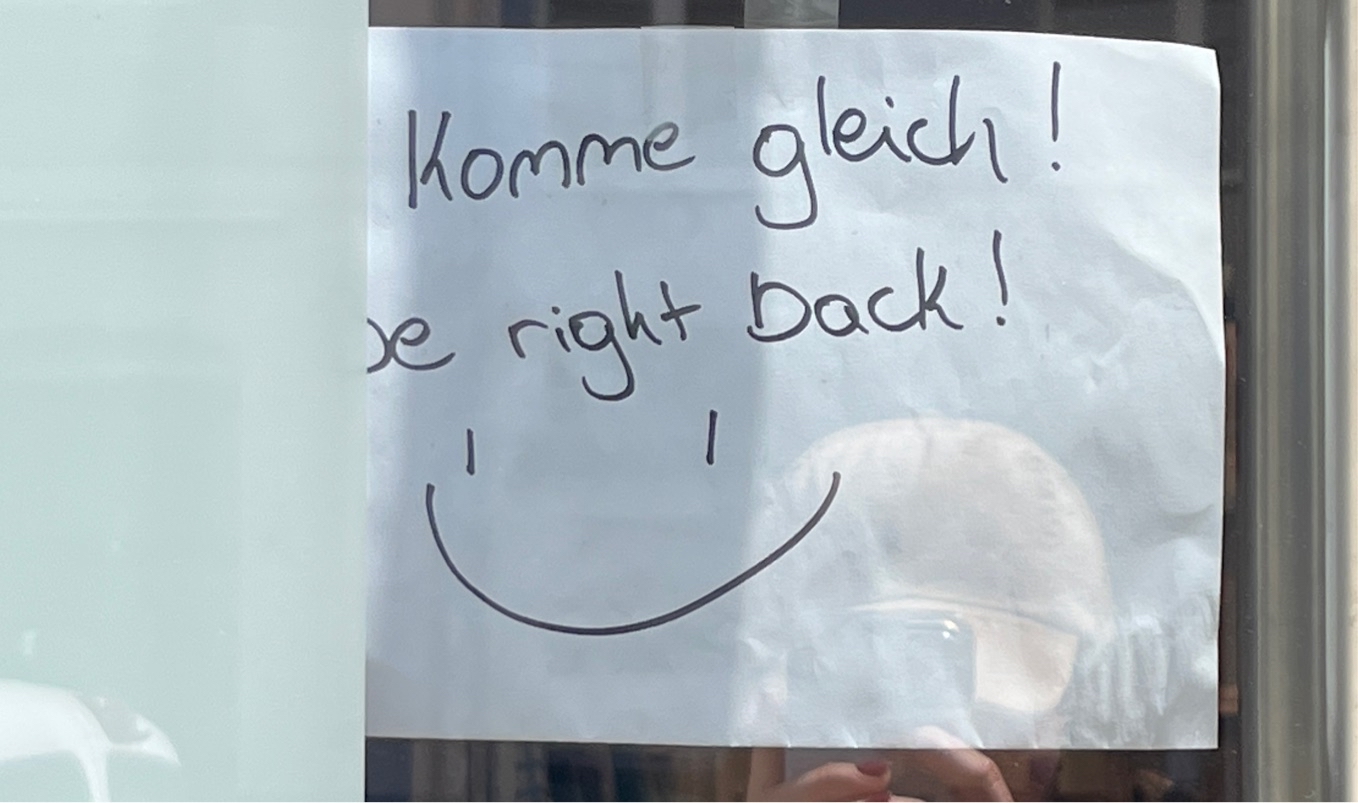 Komme gleich!
be right back!